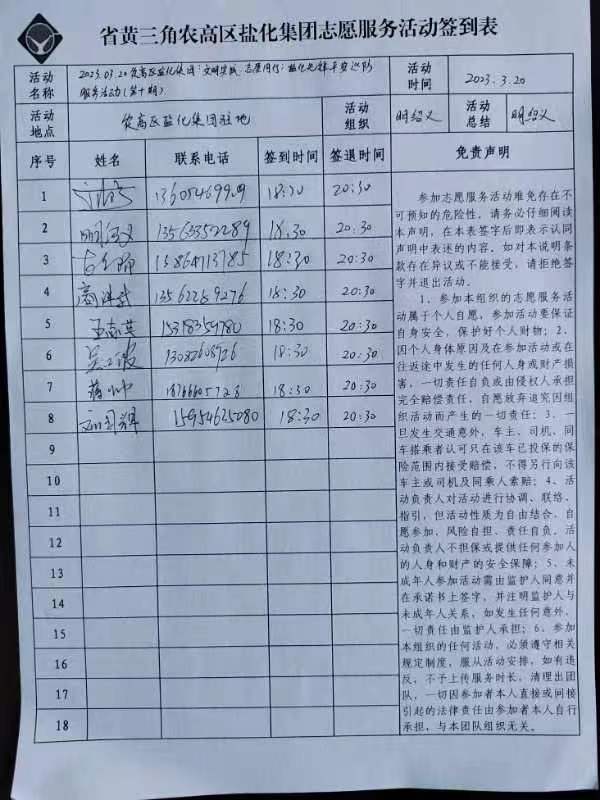 省黄三角农高区盐化集团志愿服务活动签到表
活动名称
2023.03.20 农高区盐化集团:文明实践、志愿同行:盐化先锋平安巡防
服务活动(第十期)
活动时间
2023.3.20
活动地点
农高区盐化集团驻地
活动组织
明绍义
活动总结
明绍义
序号 姓名 联系电话 签到时间 签退时间 免责声明
1 20:30
2 明绍义 13563352289 18:30 20:30
3 13864713785 18:30 20:30
4 13562289276 18:30 20:30
5 15318354780 18:30 20:30
6 18:30 20:30
7 18:30 20:30
8 15954625080 18:30 20:30
9
10
11
12
13
14
15
16
17
18
参加志愿服务活动难免存在不
可预知的危险性，请务必仔细阅读
本声明，在本表签字后即表示认同
声明中表述的内容。如对本说明条
款存在异议或不能接受，请拒绝签
字并退出活动。
1、参加本组织的志愿服务活
动属于个人自愿，参加活动要保证
自身安全，保护好个人财物；2、
因个人身体原因及在参加活动或在
往返途中发生的任何人身或财产损
害，一切责任自负或由侵权人承担
完全赔偿责任，自愿放弃追究因组
织活动而产生的一切责任；3、一
旦发生交通意外，车主、司机、同
车搭乘者认可只在该车已投保的保
险范围内接受赔偿，不得另行向该
车主或司机及同乘人索赔；4、活
动负责人对活动进行协调、联络、
指引，但活动性质为自由结合、自
愿参加、风险自担、责任自负。活
动负责人不担保或提供任何参加人
的人身和财产的安全保障；5、未
成年人参加活动需由监护人同意并
在承诺书上签字，并注明监护人与
未成年人关系，如发生任何意外，
一切责任由监护人承担；6、参加
本组织的任何活动，必须遵守相关
规定制度，服从活动安排，如有违
反，不予上传服务时长，清理出团
队，一切因参加者本人直接或间接
引起的法律责任由参加者本人自行
承担，与本团队组织无关。